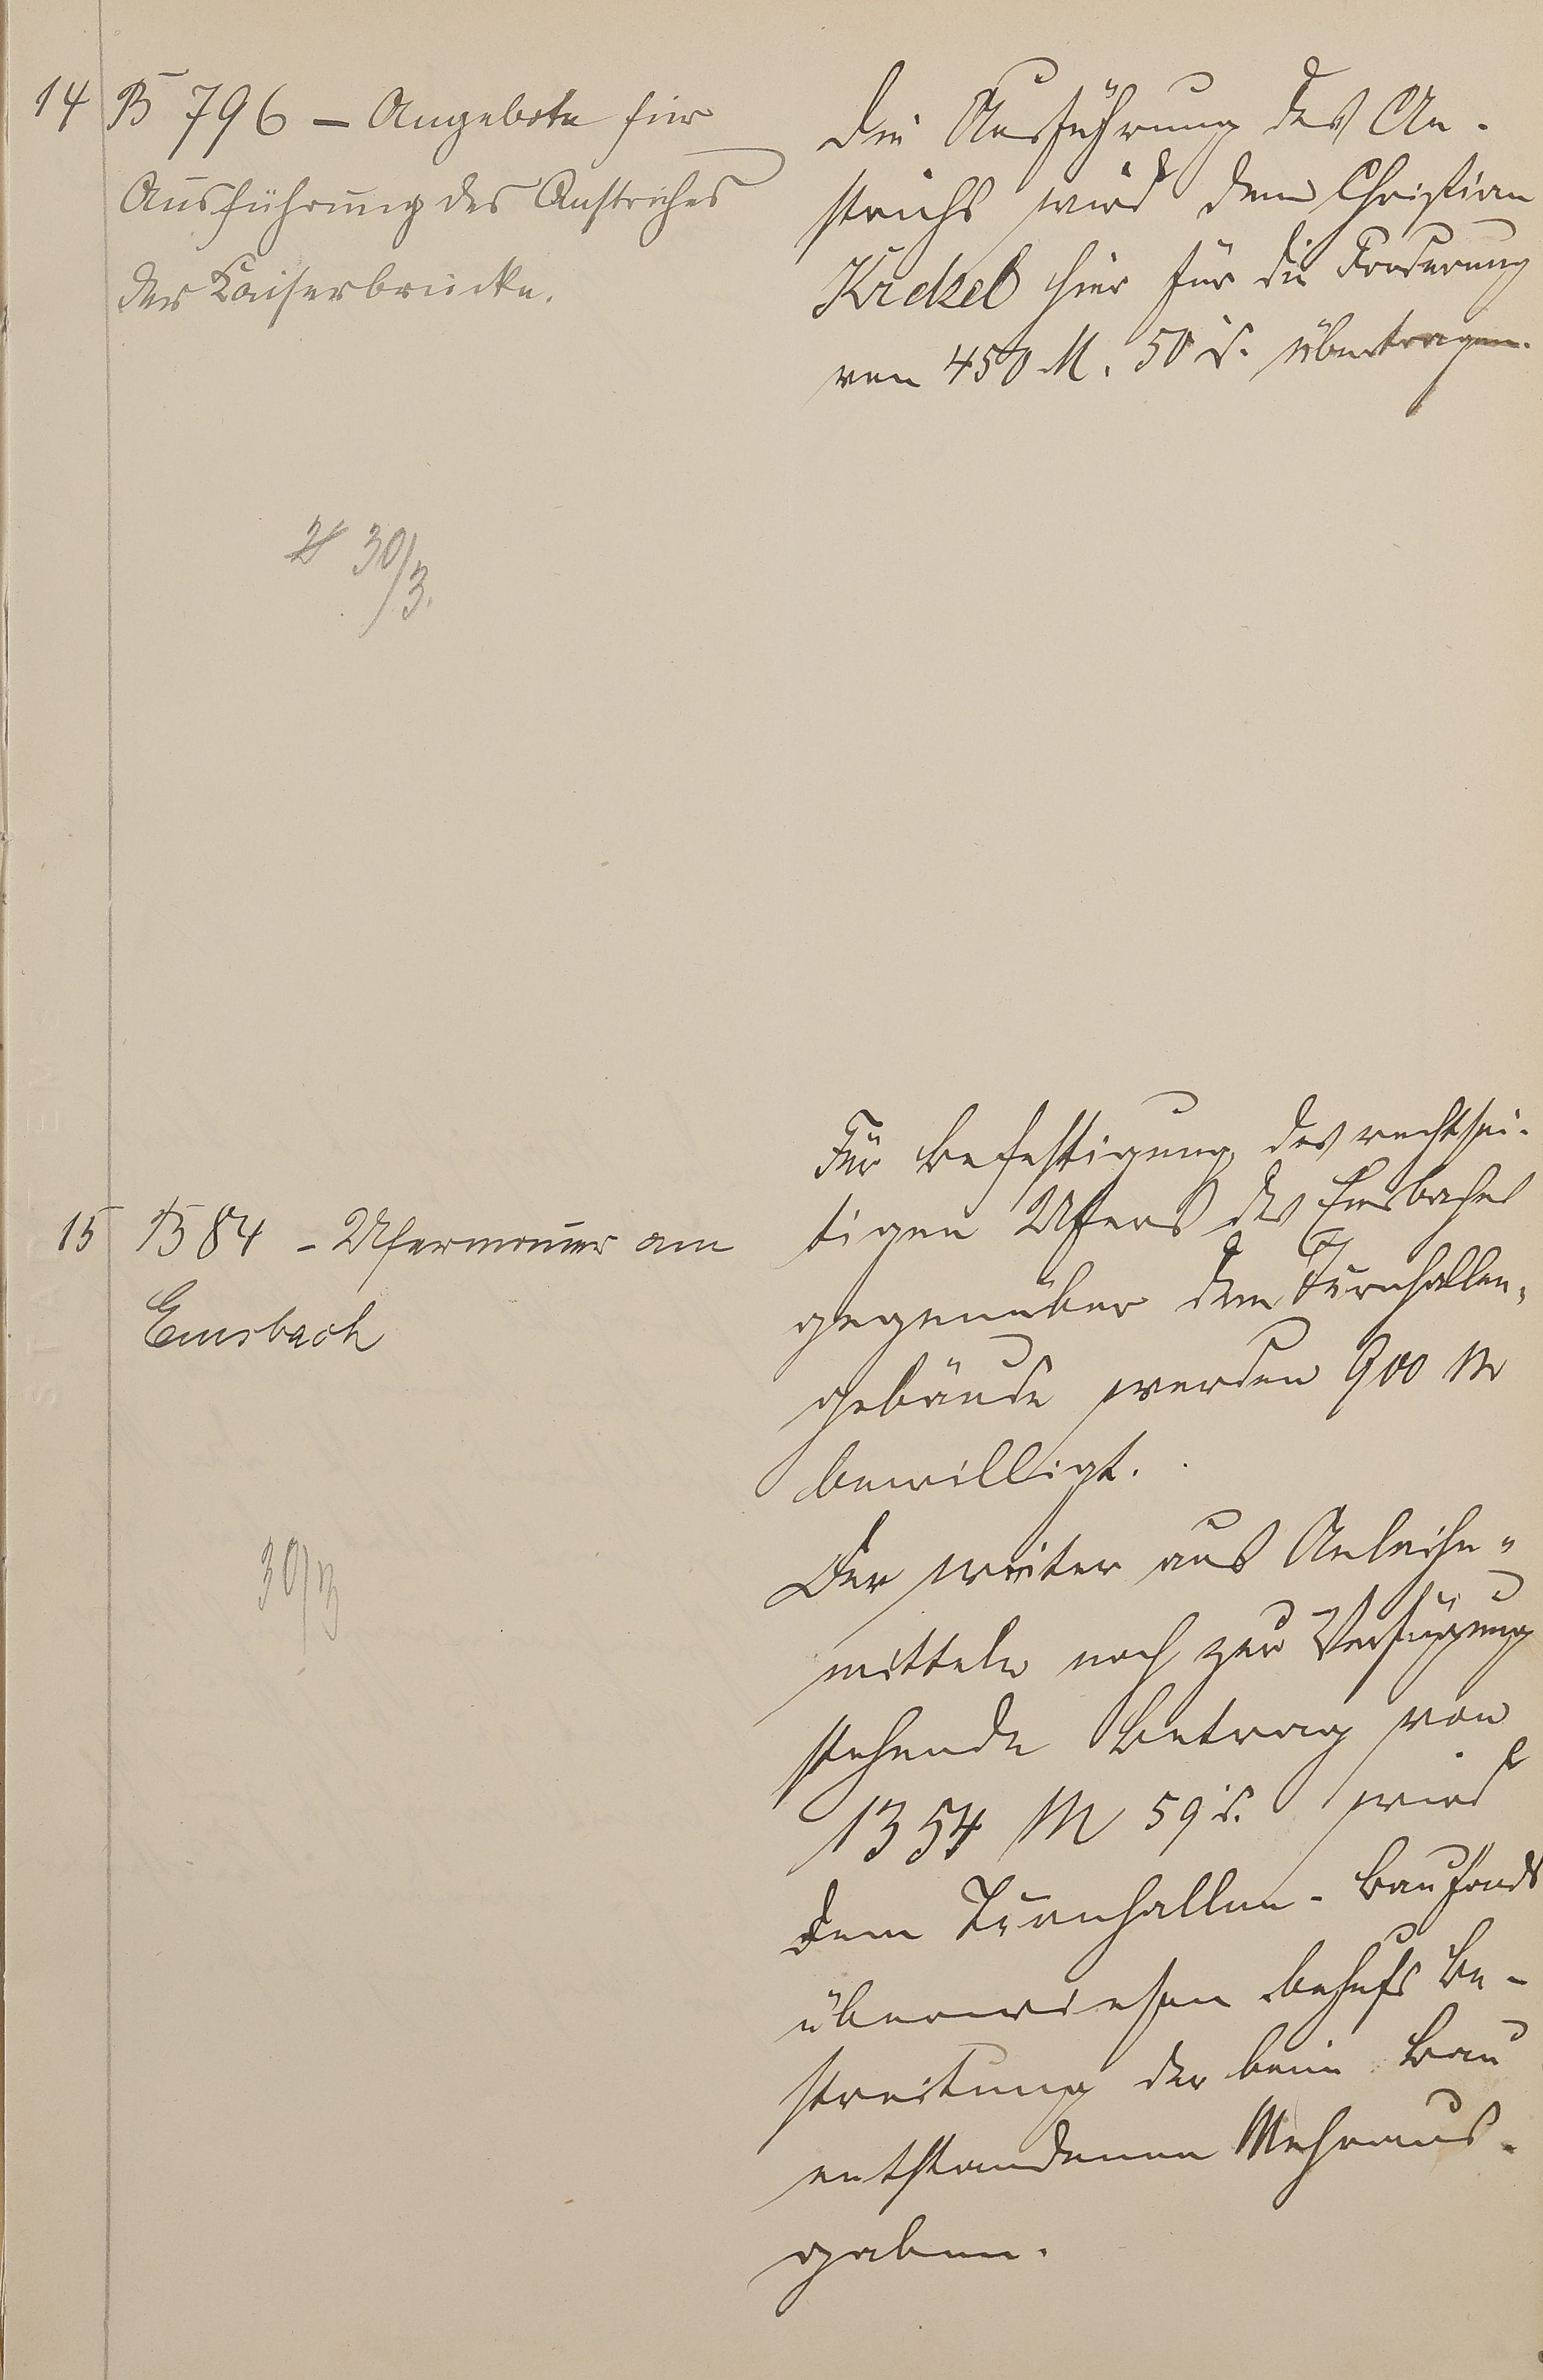 14 B 796 – Angebote für
Ausführung des Anstriches
der Kaiserbrücke.
Die Ausführung des An-
strichs wird dem Christian
Krekel hier für die Forderung
von 450 M. 50 d. übertragen.
30/3.
15 B 84 – Ufermauer am
Emsbach
Für Befestigung des rechtsei-
tigen Ufers des Emsbaches
gegenüber dem Turnhallen-
gebäude werden 900 M
bewilligt.
30/3
Der weiter aus Anleihe-
mitteln noch zur Verfügung
stehende Betrag von
1354 M 59 d. wird
dem Turnhallen-Baufonds
überwiesen behufs Be-
streitung der beim Bau
entstandenen Mehraus-
gaben.